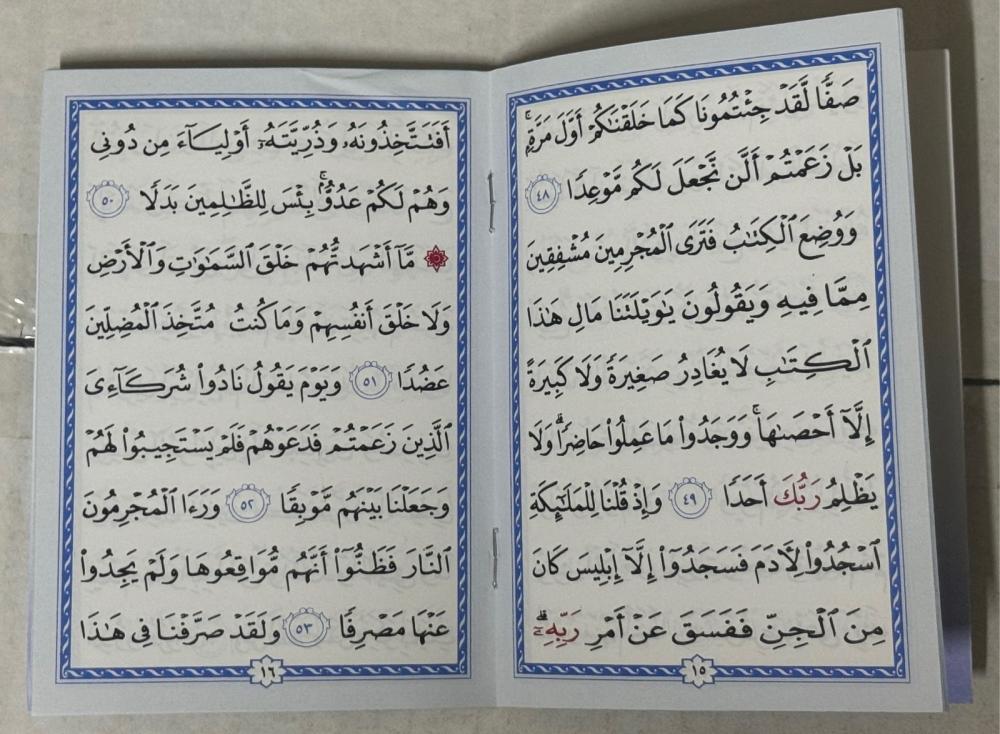 صَفًّا لَّقَدْ جِئْتُمُونَا كَمَا خَلَقْنَٰكُمْ أَوَّلَ مَرَّةٍۭ ۚ
بَلْ زَعَمْتُمْ أَلَّن نَّجْعَلَ لَكُم مَّوْعِدًا ٤٨
وَوُضِعَ ٱلْكِتَٰبُ فَتَرَى ٱلْمُجْرِمِينَ مُشْفِقِينَ
مِمَّا فِيهِ وَيَقُولُونَ يَٰوَيْلَتَنَا مَالِ هَٰذَا
ٱلْكِتَٰبِ لَا يُغَادِرُ صَغِيرَةً وَلَا كَبِيرَةً
إِلَّآ أَحْصَىٰهَا ۚ وَوَجَدُوا۟ مَا عَمِلُوا۟ حَاضِرًا ۗ وَلَا
يَظْلِمُ رَبُّكَ أَحَدًا ٤٩ وَإِذْ قُلْنَا لِلْمَلَٰٓئِكَةِ
ٱسْجُدُوا۟ لِأَدَمَ فَسَجَدُوٓا۟ إِلَّآ إِبْلِيسَ كَانَ
مِنَ ٱلْجِنِّ فَفَسَقَ عَنْ أَمْرِ رَبِّهِۦٓ ۗ
١٥
أَفَتَتَّخِذُونَهُۥ وَذُرِّيَّتَهُۥٓ أَوْلِيَآءَ مِن دُونِى
وَهُمْ لَكُمْ عَدُوٌّۢ ۚ بِئْسَ لِلظَّٰلِمِينَ بَدَلًا ٥٠
۞ مَّآ أَشْهَدتُّهُمْ خَلْقَ ٱلسَّمَٰوَٰتِ وَٱلْأَرْضِ
وَلَا خَلْقَ أَنفُسِهِمْ وَمَا كُنتُ مُتَّخِذَ ٱلْمُضِلِّينَ
عَضُدًا ٥١ وَيَوْمَ يَقُولُ نَادُوا۟ شُرَكَآءِىَ
ٱلَّذِينَ زَعَمْتُمْ فَدَعَوْهُمْ فَلَمْ يَسْتَجِيبُوا۟ لَهُمْ
وَجَعَلْنَا بَيْنَهُم مَّوْبِقًا ٥٢ وَرَءَا ٱلْمُجْرِمُونَ
ٱلنَّارَ فَظَنُّوٓا۟ أَنَّهُم مُّوَاقِعُوهَا وَلَمْ يَجِدُوا۟
عَنْهَا مَصْرِفًا ٥٣ وَلَقَدْ صَرَّفْنَا فِى هَٰذَا
١٦